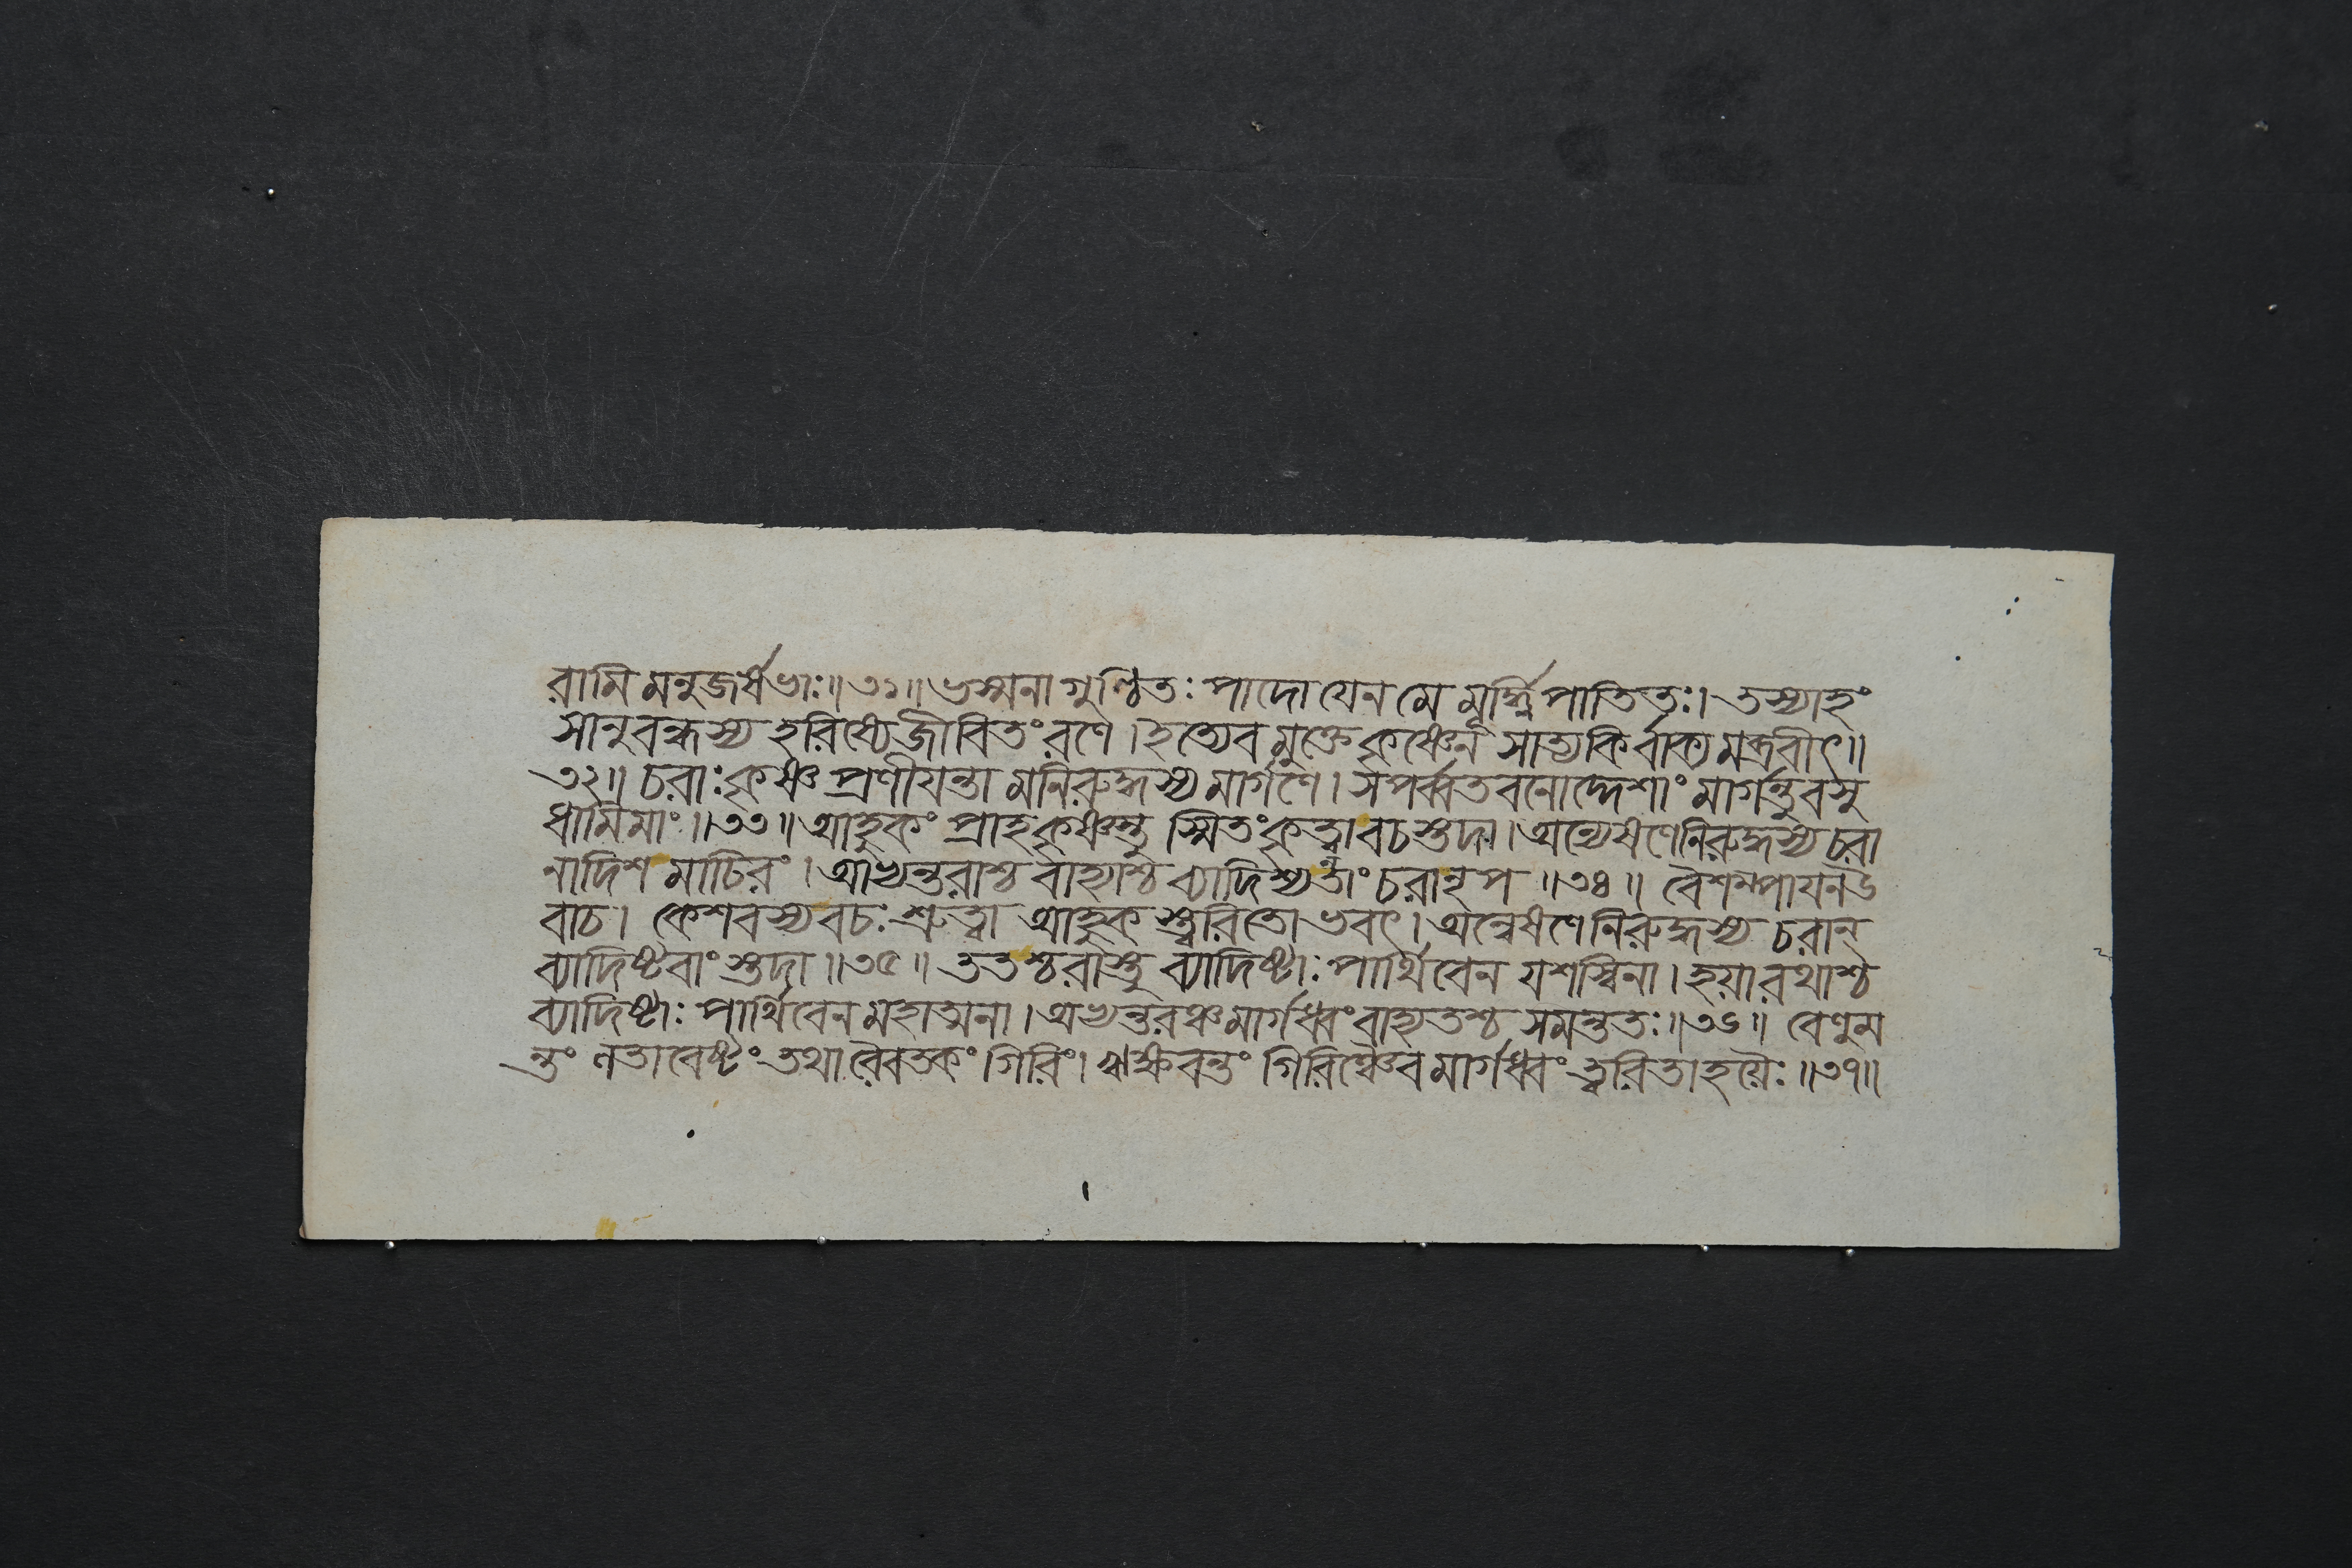 রামি মনুজর্ষভাঃ॥৩১॥ ভস্মনা গুণ্ঠিতঃ পাদো যেন মে মূর্ধ্নি পাতিতঃ। তস্যাহং
সানুবন্ধস্য হরিষ্যে জীবিতং রণে। ইত্যেব মুক্তে কৃষ্ণেন সাত্যকির্বাক্য মব্রবীৎ॥
৩২॥ চরাঃ কৃষ্ণ প্রণীযন্তা মনিরুদ্ধস্য মার্গণে। সপর্ব্বতবনোদ্দেশাং মার্গন্তু বসু
ধামিমাং॥৩৩॥ আহুকং প্রাহ কৃষ্ণস্তু স্মিতং কৃত্বা বচস্তদা। অন্যেষণেনিরুদ্ধস্য চরা
নাদিশ মাচিরং। আভ্যন্তরাশ্চ বাহ্যাশ্চ ব্যাদিশ্যতাং চরানৃপ॥৩৪॥ বেশম্পাযনউ
বাচ। কেশবস্য বচঃ শ্রুত্বা আহুক স্ত্বরিতো ভবৎ। অন্বেষণেনিরুদ্ধস্য চরান্
ব্যাদিষ্টবাং স্তদা॥৩৫॥ ততশ্চরাস্তু ব্যাদিষ্টাঃ পার্থিবেন যশস্বিনা। হয়ারথাশ্চ
ব্যাদিষ্টাঃ পার্থিবেন মহাত্মনা। অভ্যন্তরঞ্চ মার্গধ্বং বাহ্যতশ্চ সমন্ততঃ॥৩৬॥ বেণুম
ন্তং লতাবেষ্টং তথা রৈবতকং গিরিং। ঋক্ষবন্তং গিরিঞ্চৈব মার্গধ্বং ত্বরিতা হয়ৈঃ॥৩৭॥